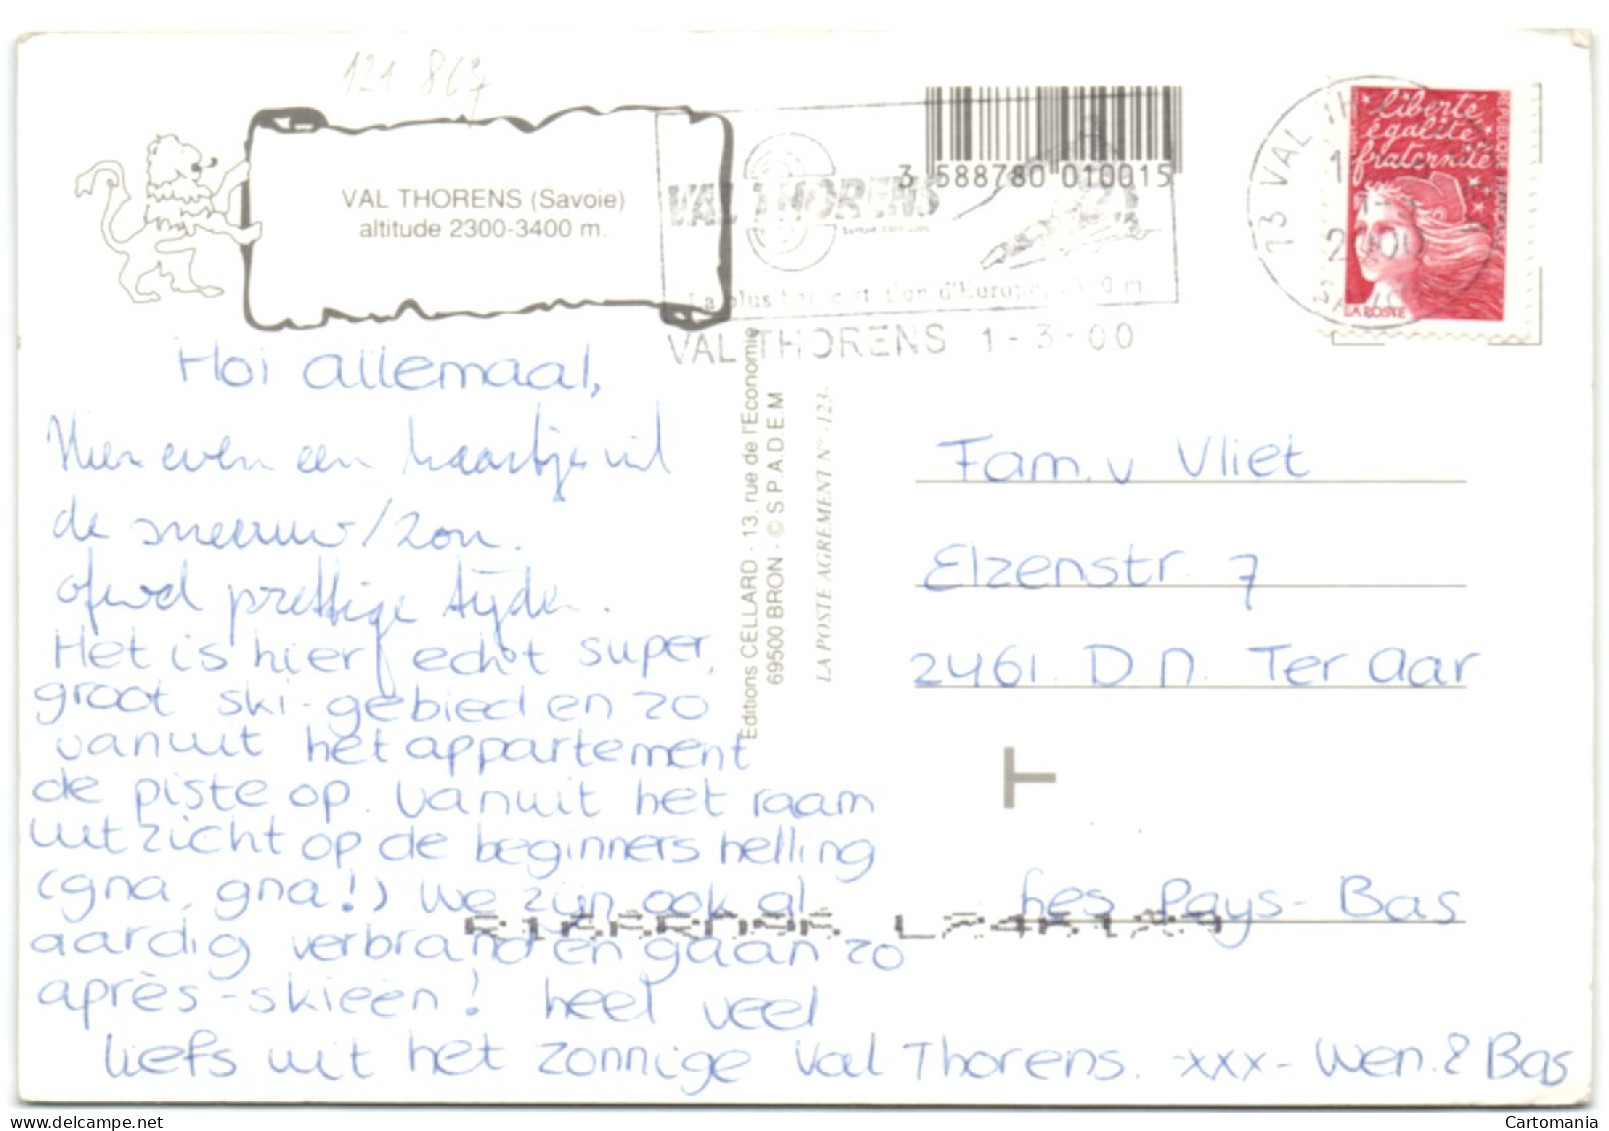 121 867
VAL THORENS (Savoie)
altitude 2300-3400 m.
3 588780 010015
VAL THORENS
La plus haute station d'Europe
VAL THORENS 1-3-00
73 VAL TH
2000
liberté
égalité
fraternité
LA POSTE
Hoi allemaal,
Hier even een kaartje uit
de sneeuw/zon.
ofwel prettige tijden.
Het is hier echt super,
groot ski-gebied en zo
vanuit het appartement
de piste op. Vanuit het raam
uitzicht op de beginnershelling
(gna, gna!) We zijn ook al
aardig verbrand en gaan zo
après-skieën! heel veel
liefs uit het zonnige Val Thorens. -xxx- Wen. & Bas
Editions CELLARD - 13, rue de l'Economie
69500 BRON - © SPADEM
LA POSTE AGREMENT N° -123-
Fam. v Vliet
Elzenstr. 7
2461. D.N. Ter Aar
les Pays-Bas
T
Cartomania